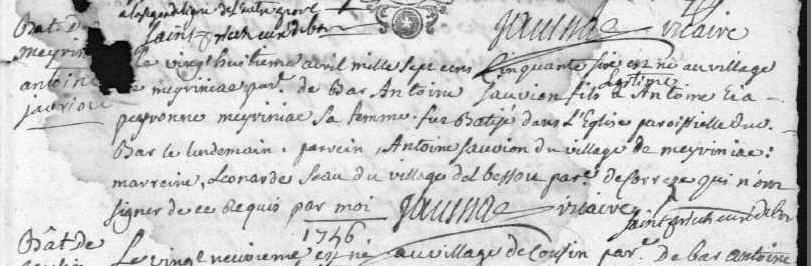 Saint Priech curé de bar
Jaussa vicaire
Bat. de
meyrinia
antoine
jauvion
Le vingthuitieme avril mille sept cens Cinquante six est né au village
de meyriniac par.e de Bar Antoine jauvion fils legitime a Antoine et a
peyronne meyriniac sa femme. fut Batisé dans L'Eglise paroissielle du
Bar le lendemain. parrein, Antoine jauvion du village de meyriniac:
marreine, Leonarde Seau du village del bessou par.e de Correze qui n'ont
signer de ce Requis par moi Jaussa vicaire
Saint Priech curé de bar
1756
Bât. de
Le vingt neuvieme est né au village de Cousin par.e de bar antoine